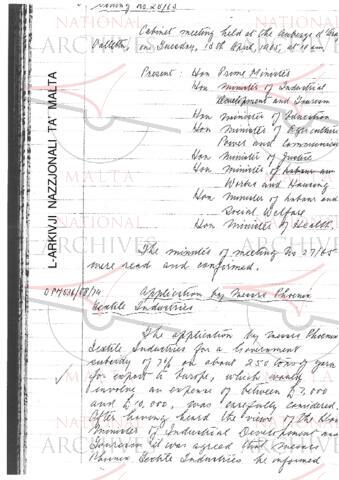 Meeting No 28/65
Cabinet meeting held at the Auberge d'
Valletta, on Tuesday, 13th April, 1965, at 10 am
Present : Hon Prime Minister
Hon Minister of Industrial
Development and Tourism
Hon Minister of Education
Hon Minister of Agriculture
Power and Communications
Hon Minister of Justice
Hon Minister of Labour an
Works and Housing
Hon Minister of Labour and
Social Welfare
Hon Minister of Health.
The minutes of meeting No 27/65
were read and confirmed.
Application by Messrs Phoenix
Textile Industries
The application by Messrs Phoenix
Textile Industries for a Government
subsidy of 7% on about 250 tons of yarn
for export to Europe, which would
involve an expense of between £7,000
and , was carefully considered.
After having heard the views of the Hon
Minister of Industrial Development and
Tourism it was agreed that Messrs
Phoenix Textile Industries be informed
L-ARKIVJI NAZZJONALI TA' MALTA
NATIONAL
ARCHIVES
MALTA